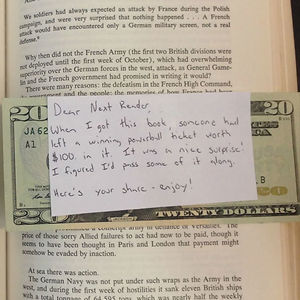 We soldiers had always expected an attack by France during the Polish
campaign, and were very surprised that nothing happened . . . A French
attack would have encountered only a German military screen, not a real
defense.
Why then did not the French Army (the first two British divisions were
not deployed until the first week of October), which had overwhelming
superiority over the German forces in the west, attack, as General Game-
lin and the French government had promised in writing it would?
There were many reasons: the defeatism in the French High Command,
government and the people; the memories of how France had been
20
20
JA 62
A1
Dear Next Reader,
When I got this book, someone had
left a winning powerball ticket worth
$100. in it. It was a nice surprise!
I figured I'd pass some of it along.
Here's your share - enjoy!
B
20
TWENTY DOLLARS
conscript army in defiance of Versailles. The
price of those sorry Allied failures to act had now to be paid, though it
seems to have been thought in Paris and London that payment might
somehow be evaded by inaction.
At sea there was action.
The German Navy was not put under such wraps as the Army in the
west, and during the first week of hostilities it sank eleven British ships
with a total tonnage of 64,595 tons, which was nearly half the weekly